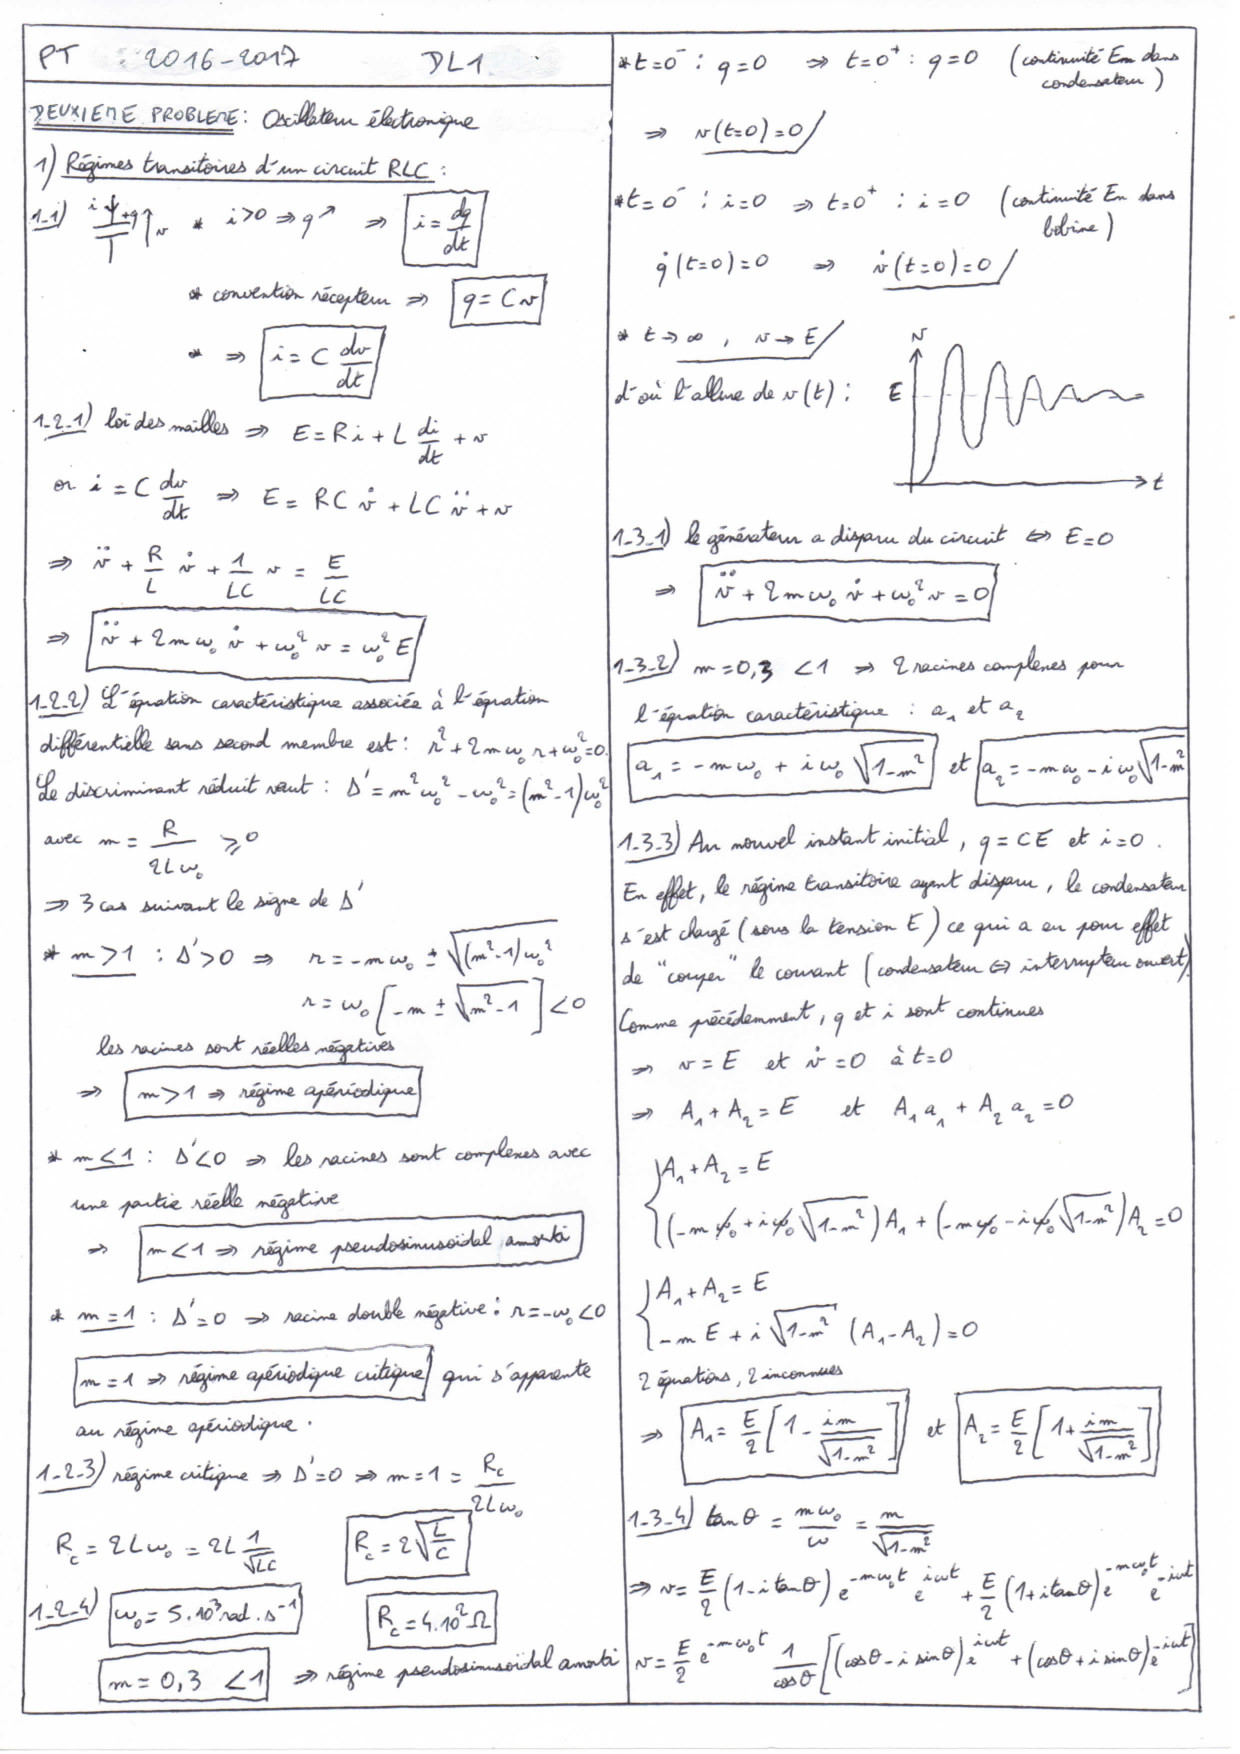 PT 2016-2017 DL1
DEUXIEME PROBLEME : Oscillateur électronique
1) Régimes transitoires d'un circuit RLC :
1-1) i +q v * i>0 ⇒ q ↗ ⇒ i = dq/dt
* convention récepteur ⇒ q = Cv
* ⇒ i = C dv/dt
1-2-1) loi des mailles ⇒ E = Ri + L di/dt + v
or i = C dv/dt ⇒ E = RC v̇ + LC v̈ + v
⇒ v̈ + R/L v̇ + 1/LC v = E/LC
⇒ v̈ + 2mω₀ v̇ + ω₀² v = ω₀² E
1-2-2) L'équation caractéristique associée à l'équation
différentielle sans second membre est : r² + 2mω₀ r + ω₀² = 0.
Le discriminant réduit vaut : Δ' = m²ω₀² - ω₀² = (m²-1)ω₀²
avec m = R/2Lω₀ ⩾ 0
⇒ 3 cas suivant le signe de Δ'
* m>1 : Δ'>0 ⇒ r = -mω₀ ± √((m²-1)ω₀²)
r = ω₀ [-m ± √(m²-1)] < 0
les racines sont réelles négatives
⇒ m>1 ⇒ régime apériodique
* m<1 : Δ'<0 ⇒ les racines sont complexes avec
une partie réelle négative
⇒ m<1 ⇒ régime pseudosinusoïdal amorti
* m=1 : Δ'=0 ⇒ racine double négative : r=-ω₀<0
m=1 ⇒ régime apériodique critique qui s'apparente
au régime apériodique.
1-2-3) régime critique ⇒ Δ'=0 ⇒ m=1= Rc/2Lω₀
Rc = 2Lω₀ = 2L 1/√LC Rc = 2√(L/C)
1-2-4) ω₀ = 5.10³ rad.s⁻¹ Rc = 4.10² Ω
m = 0,3 < 1 ⇒ régime pseudosinusoïdal amorti
* t=0⁻ : q=0 ⇒ t=0⁺ : q=0 (continuité Em dans
condensateur)
⇒ v(t=0)=0
* t=0⁻ : i=0 ⇒ t=0⁺ : i=0 (continuité Em dans
bobine)
q̇(t=0)=0 ⇒ v̇(t=0)=0
* t→∞ , v→E
d'où l'allure de v(t) : v E t
1-3-1) le générateur a disparu du circuit ⇔ E=0
⇒ v̈ + 2mω₀ v̇ + ω₀² v = 0
1-3-2) m=0,3 <1 ⇒ 2 racines complexes pour
l'équation caractéristique : a₁ et a₂
a₁ = -mω₀ + iω₀ √(1-m²) et a₂ = -mω₀ - iω₀ √(1-m²)
1-3-3) Au nouvel instant initial, q = CE et i=0.
En effet, le régime transitoire ayant disparu, le condensateur
s'est chargé (sous la tension E) ce qui a eu pour effet
de "couper" le courant (condensateur ⇔ interrupteur ouvert).
Comme précédemment, q et i sont continues
⇒ v = E et v̇ = 0 à t=0
⇒ A₁ + A₂ = E et A₁a₁ + A₂a₂ = 0
{ A₁ + A₂ = E
(-mω₀ + iω₀ √(1-m²)) A₁ + (-mω₀ - iω₀ √(1-m²)) A₂ = 0
{ A₁ + A₂ = E
-mE + i√(1-m²) (A₁-A₂) = 0
2 équations, 2 inconnues
⇒ A₁ = E/2 [1 - im/√(1-m²)] et A₂ = E/2 [1 + im/√(1-m²)]
1-3-4) tanθ = mω₀/ω = m/√(1-m²)
⇒ v = E/2 (1-i tanθ) e^(-mω₀t) e^(iωt) + E/2 (1+i tanθ) e^(-mω₀t) e^(-iωt)
v = E/2 e^(-mω₀t) 1/cosθ [(cosθ - i sinθ) e^(iωt) + (cosθ + i sinθ) e^(-iωt)]